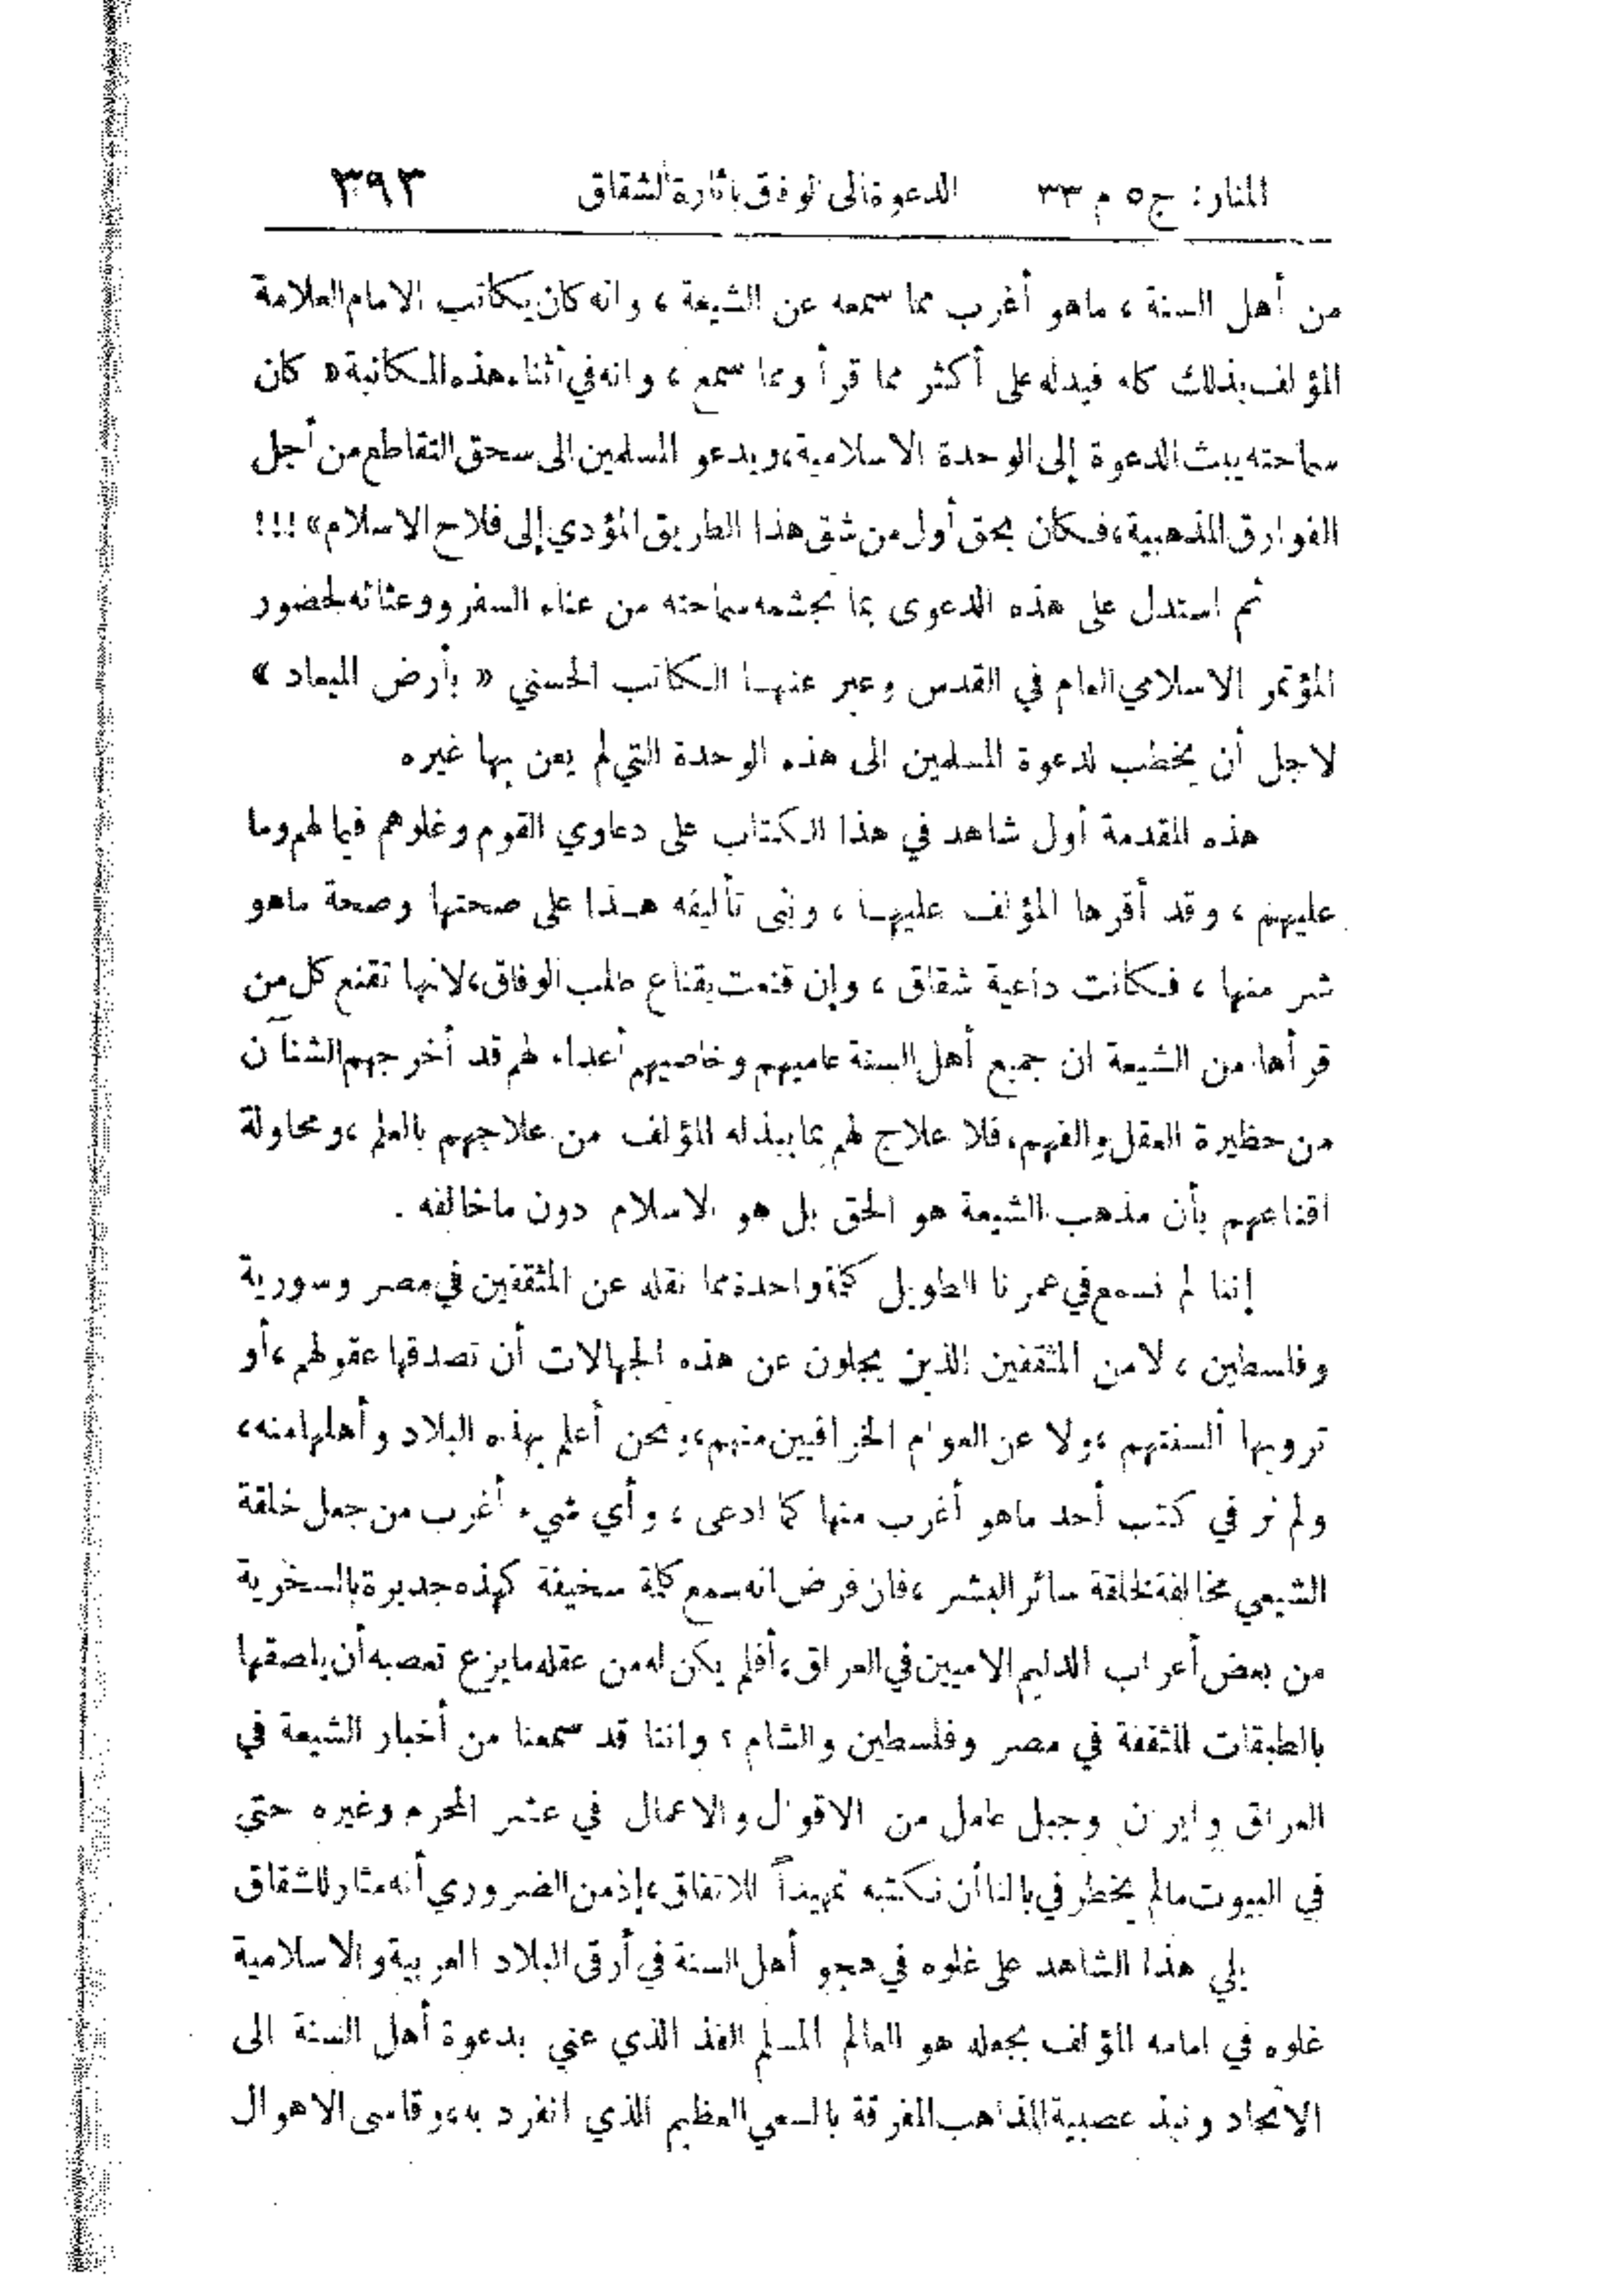 المنار: ج٥ م ٣٣ الدعوة إلى الوفاق باثارة الشقاق ٣٩٣
من أهل السنة ، ماهو أغرب مما سمعه عن الشيعة ، وانه كان يكاتب الامام العلامة
المؤلف بذلك كله فيدله على أكثر مما قرأ ومما سمع ، وانه في أثناء هذه المكاتبة « كان
سماحته يبث الدعوة إلى الوحدة الاسلامية ، ويدعو المسلمين الى سحق التقاطع من أجل
الفوارق المذهبية ، فكان بحق أول من شق هذا الطريق المؤدي إلى فلاح الاسلام » !!!
ثم استدل على هذه الدعوى بما تجشمه سماحته من عناء السفر ووعثائه لحضور
المؤتمر الاسلامي العام في القدس وعبر عنها الكاتب الحسني « بأرض الميعاد »
لاجل أن يخطب لدعوة المسلمين الى هذه الوحدة التي لم يعن بها غيره
هذه المقدمة أول شاهد في هذا الكتاب على دعاوي القوم وغلوهم فيما لهم وما
عليهم ، وقد أقرها المؤلف عليها ، وبنى تأليفه هذا على صحتها وصحة ماهو
شر منها ، فكانت داعية شقاق ، وإن قنعت بقناع طلب الوفاق ، لانها تقنع كل من
قرأها من الشيعة ان جميع أهل السنة عاميهم وخاصيهم أعداء لهم قد أخرجهم الشنآن
من حظيرة العقل والفهم ، فلا علاج لهم بما يبذله المؤلف من علاجهم بالعلم ، ومحاولة
اقناعهم بأن مذهب الشيعة هو الحق بل هو الاسلام دون ماخالفه .
إننا لم نسمع في عمرنا الطويل كلمة واحدة مما نقله عن المثقفين في مصر وسورية
وفلسطين ، لامن المثقفين الذين يجلون عن هذه الجهالات أن تصدقها عقولهم ، أو
ترويها ألسنتهم ، ولا عن العوام الخرافيين منهم ، ونحن أعلم بهذه البلاد وأهلها منه ،
ولم نر في كتب أحد ماهو أغرب منها كما ادعى ، وأي شيء أغرب من جعل خلقة
الشيعي مخالفة لخلقة سائر البشر ، فان فرض انه سمع كلمة سخيفة كهذه جديرة بالسخرية
من بعض أعراب الدليم الاميين في العراق ، أفلم يكن له من عقله مايزع تعصبه أن يلصقها
بالطبقات المثقفة في مصر وفلسطين والشام ؟ واننا قد سمعنا من أخبار الشيعة في
العراق وايران وجبل عامل من الاقوال والاعمال في عشر المحرم وغيره حتى
في البيوت مالم يخطر في بالنا أن نكتبه تمهيداً للاتفاق ، إذ من الضروري أنه مثار للشقاق
يلي هذا الشاهد على غلوه في هجو أهل السنة في أرقى البلاد العربية والاسلامية
غلوه في امامه المؤلف بجعله هو العالم المسلم الفذ الذي عني بدعوة أهل السنة الى
الاتحاد ونبذ عصبية المذاهب المفرقة بالسعي العظيم الذي انفرد به ، وقاسى الاهوال